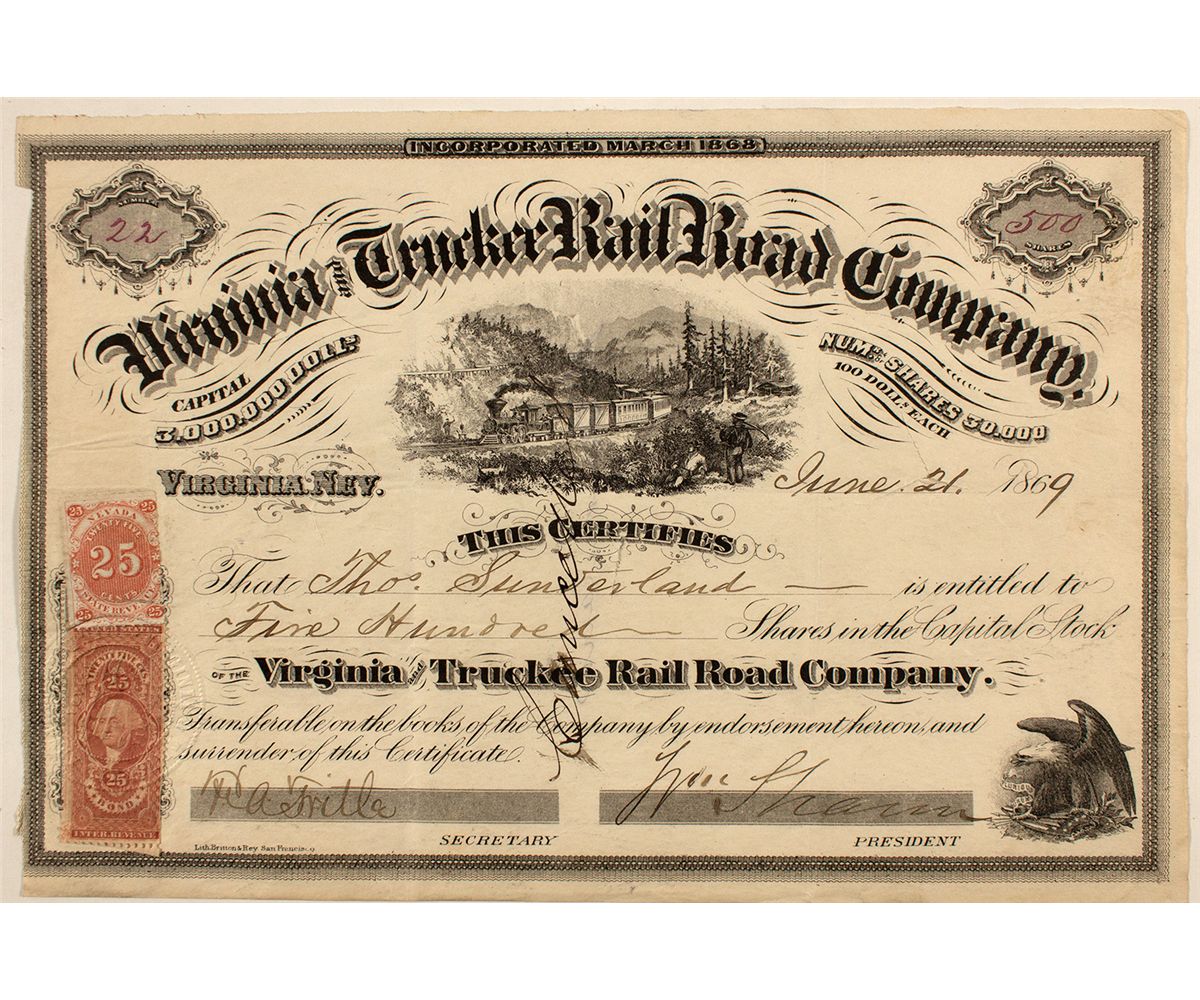 INCORPORATED MARCH 1868
NUMBER
22
500
SHARES
Virginia and Truckee Rail Road Company.
CAPITAL
3,000,000 DOLLS.
NUMR. SHARES 30,000
100 DOLLS. EACH
VIRGINIA. NEV.
June. 21. 1869
THIS CERTIFIES
That Thos. Sunderland is entitled to
Five Hundred Shares in the Capital Stock
OF THE Virginia and Truckee Rail Road Company.
Transferable on the books of the Company by endorsement hereon, and
surrender of this Certificate.
Cancelled
25 25
NEVADA
TWENTY FIVE
25
CENTS
STATE REVENUE
25 25
UNITED STATES
TWENTY FIVE CTS.
25
25
BOND
INTER. REVENUE
SECRETARY
Wm Sharon
PRESIDENT
Lith. Britton & Rey. San Francisco